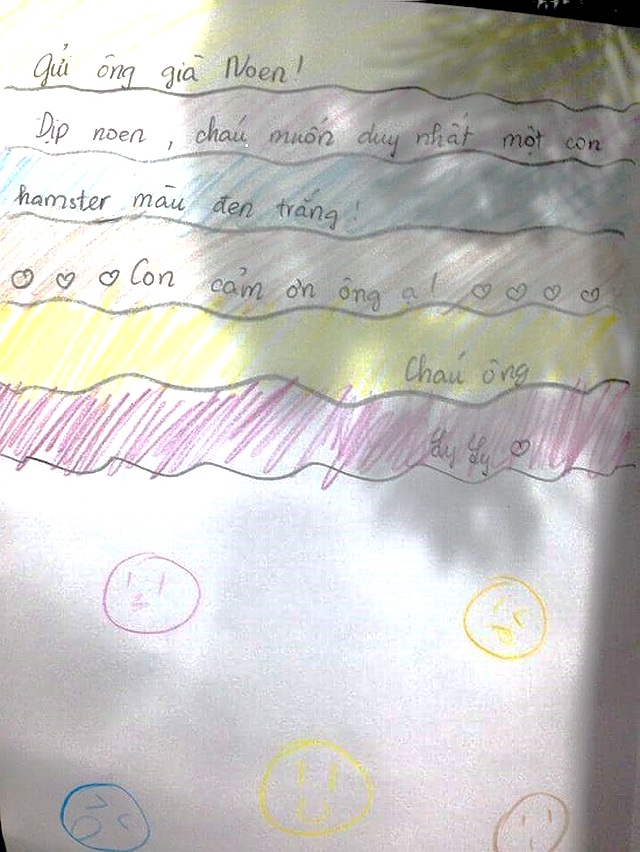 Gửi ông già Noen!
Dịp noen, cháu muốn duy nhất một con
hamster màu đen trắng!
♡ ♡ ♡ Con cảm ơn ông ạ! ♡ ♡ ♡ ♡
Cháu ông
Ly Ly ♡